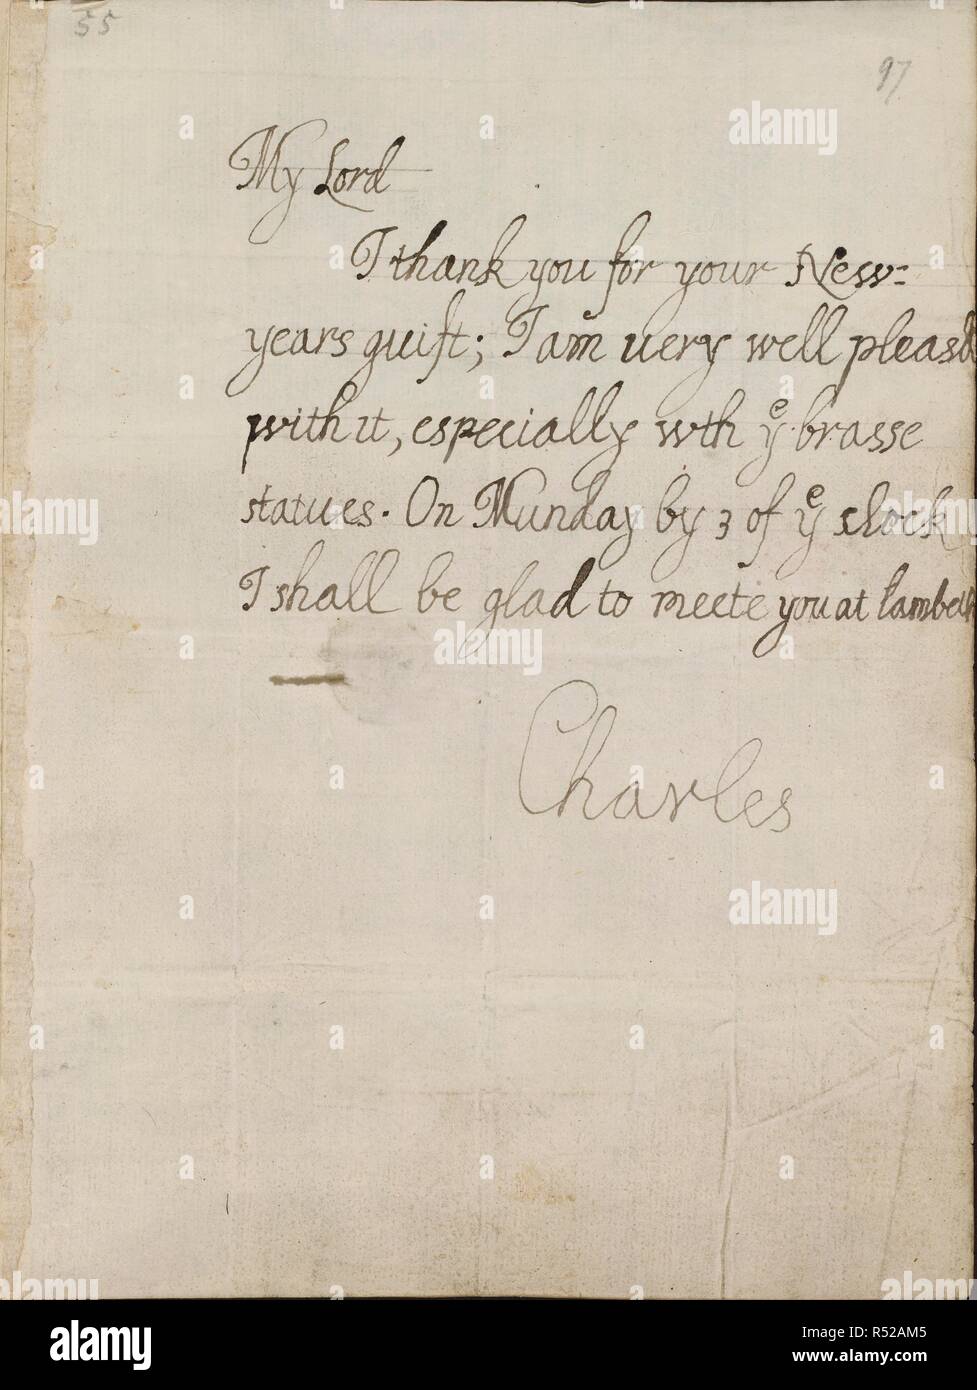 55
97
My Lord
I thank you for your New=
years guift; I am uery well pleasd
with it, especially wth yͤ brasse
statues. On Munday by 3 of yͤ clock
I shall be glad to meete you at Lambeth
Charles
alamy
Image ID: R52AM5
www.alamy.com